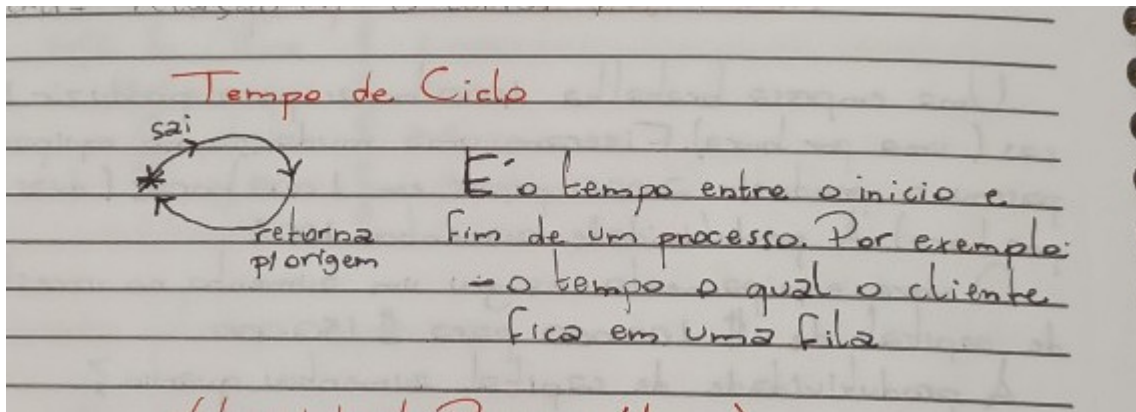 Tempo de Ciclo
sai
retorna
p/ origem
É o tempo entre o inicio e
fim de um processo. Por exemplo:
- o tempo o qual o cliente
fica em uma fila